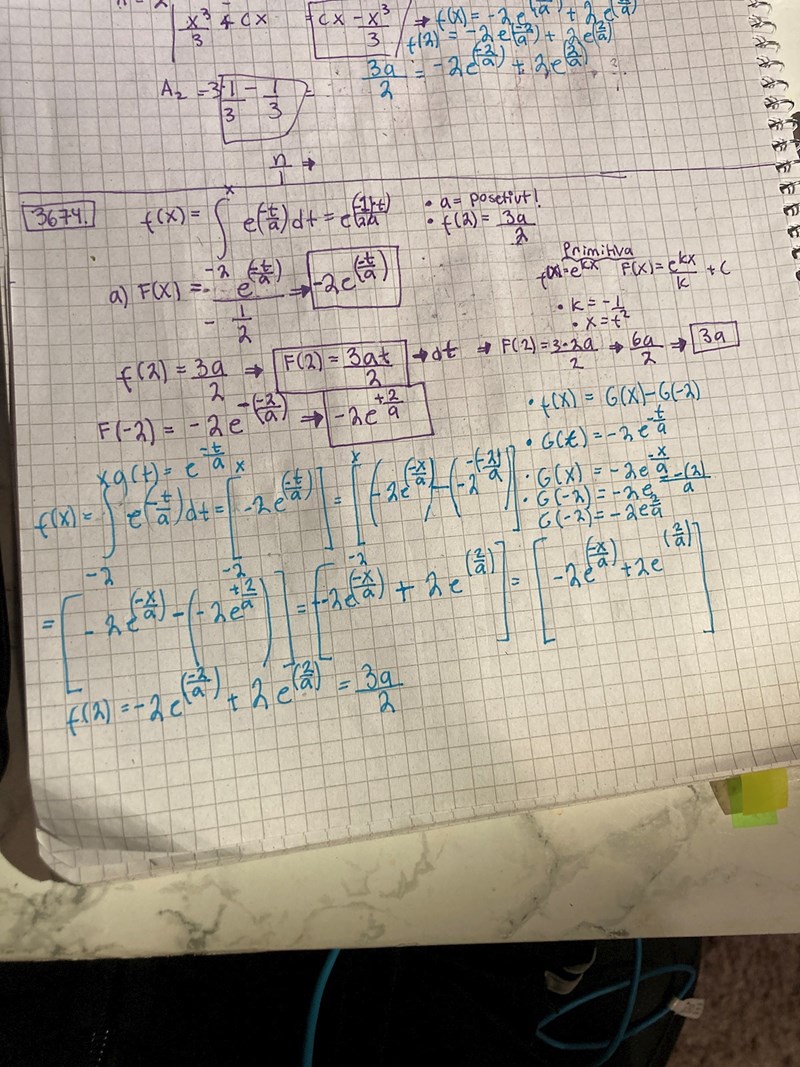 x³/3 + cx = cx - x³/3 → f(x) = -2e^(-x/a) + 2e^(2/a)
f(2) = -2e^(-2/a) + 2e^(2/a)
3a/2 = -2e^(-2/a) + 2e^(2/a)
A₂ = 3·1/3 - 1/3 =
n/1 →
3674. f(x) = ∫ x e^(-t/a) dt
• a = posetivt!
• f(2) = 3a/2
Primitiva
f(x) = e^kx F(x) = e^kx/k + C
• k = -1/
• x = t²
a) F(x) = e^(-t/a) / -1/2 → -2e^(-t/a)
f(2) = 3a/2 → F(2) = 3at/2 → dt → F(2) = 3·2a/2 → 6a/2 → 3a
F(-2) = -2e^-(-2/a) → -2e^(+2/a)
• f(x) = G(x) - G(-2)
• G(t) = -2e^(-t/a)
• G(x) = -2e^(-x/a)
• G(-2) = -2e^(-(-2)/a)
G(-2) = -2e^(2/a)
g(t) = e^(-t/a)
f(x) = ∫_-2^x e^(-t/a) dt = [-2e^(-t/a)]_-2^x = [(-2e^(-x/a)) - (-2^(-(-2)/a)]_-2^x
= [-2e^(-x/a) - (-2e^(+2/a))] = [-2e^(-x/a) + 2e^(2/a)] = [-2e^(-x/a) + 2e^(2/a)]
f(2) = -2e^(-2/a) + 2e^(2/a) = 3a/2